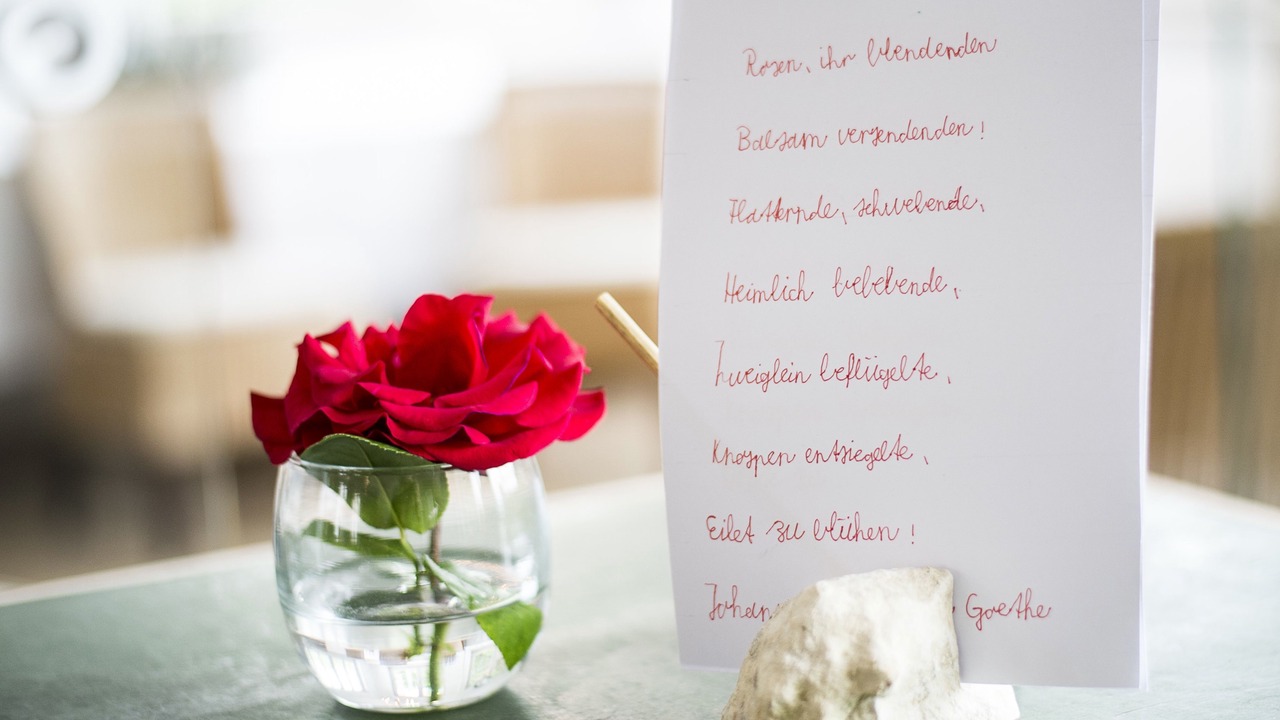 Rosen, ihr blendenden
Balsam versendenden!
Flatternde, schwebende,
Heimlich belebende,
Zweiglein beflügelte,
Knospen entsiegelte,
Eilet zu blühen!
Goethe